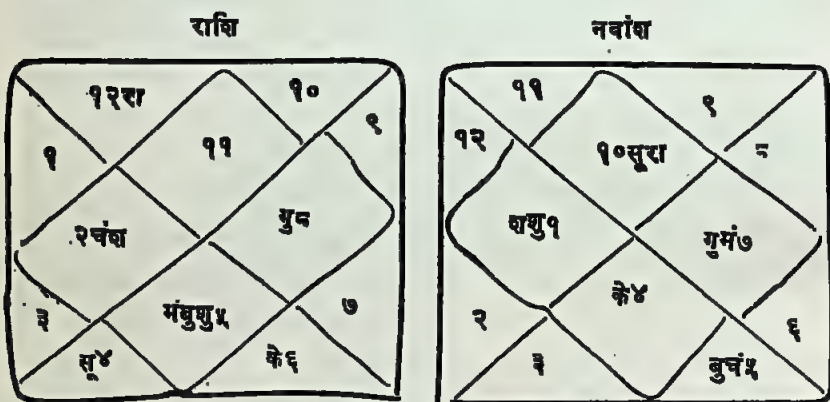 राशि
नवांश
१२रा
१०
९
१
११
२चंश
गु८
३
मंबुशु५
७
सू४
के६
११
९
१२
१०सूरा
८
शशु१
गुमं७
के४
२
६
३
बुचं५